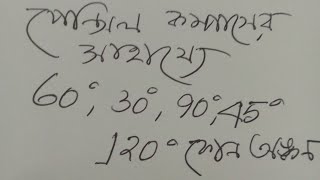 পেন্সিল কম্পাসের
সাহায্যে
60°, 30°, 90°, 45°
120° কোন অঙ্কন